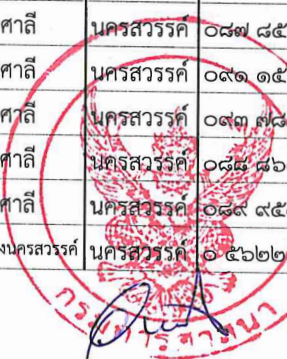 ศาลี นครสวรรค์ ๐๘๗ ๘๕
ศาลี นครสวรรค์ ๐๙๑ ๑๕
ศาลี นครสวรรค์ ๐๙๓ ๗๘
ศาลี นครสวรรค์ ๐๘๘ ๘๖
ศาลี นครสวรรค์ ๐๘๙ ๙๕
งนครสวรรค์ นครสวรรค์ ๐ ๕๖๒๒
กรมการศาสนา